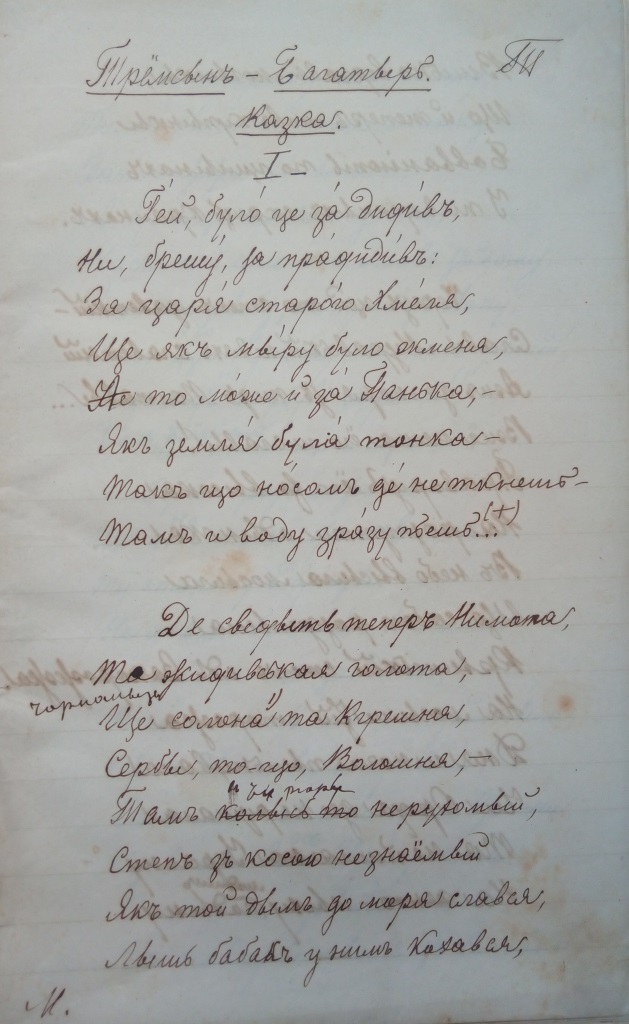 Трёмсынъ – Багатырь.
Казка.
I
Ге́й, було́ це за́ диди́въ,
Ни, брешу́, за пра́диди́въ:
За царя́ старо́го Хмеля́,
Ще якъ ми́ру було жменя,
то мо́же й за́ Панька, –
Якъ земля́ була́ тонка –
Такъ що но́сомъ де́ не ткнешь –
Тамъ и воду зра́зу пьешь... (+)
Де сведыть теперъ Нимота,
Та жидивськая голота,
Ще солона" та Кгрешня,
Сербы, то-що, Волошня, –
Тамъ колысь то нерухомый,
Степъ зъ косою незнаёмый
Якъ той дымъ до моря слався,
Лышь бабакъ у нимъ Кохався,
М.